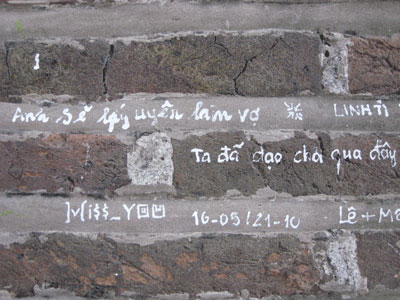 Anh sẽ lấy uyên làm vợ LINHTI
Ta đã dạo chơi qua đây
Mi$$_YOU 16-05/21-10 Lê+Mê